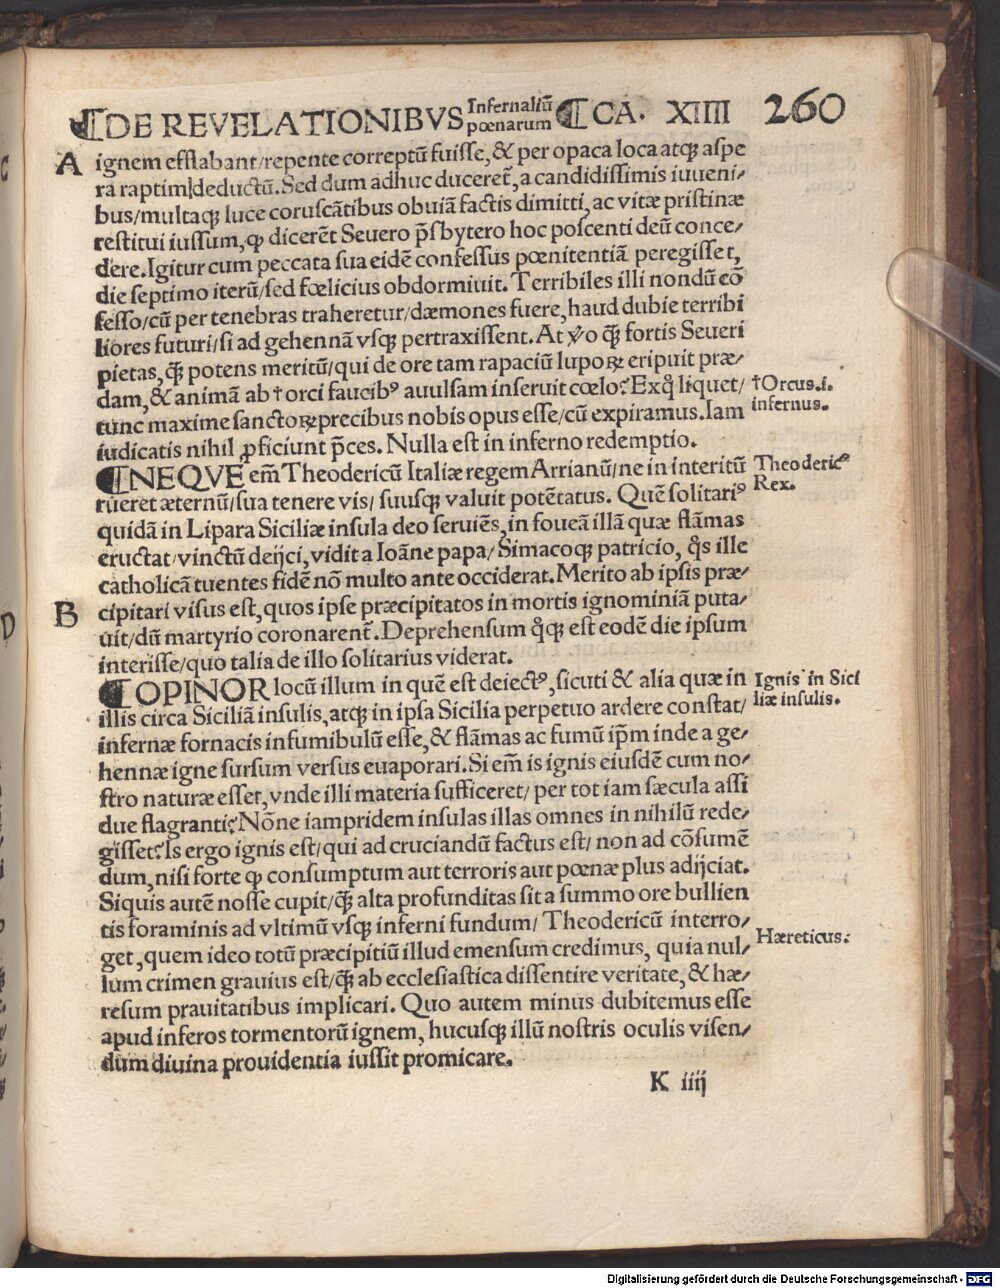 ¶DE REVELATIONIBVS Infernaliū pœnarum ¶CA. XIIII 260
A ignem efflabant/repente correptū fuisse,& per opaca loca atqꝫ aspe
ra raptim deductū.Sed dum adhuc duceret̄,a candidissimis iuueni/
bus/multaqꝫ luce coruscātibus obuiā factis dimitti,ac vitæ pristinæ
restitui iussum,ꝙ dicerēt Seuero p̄sbytero hoc poscenti deū conce/
dere.Igitur cum peccata sua eidē confessus pœnitentiā peregisset,
die septimo iterū/sed fœlicius obdormiuit.Terribiles illi nondū cō
fesso/cū per tenebras traheretur/dæmones fuere,haud dubie terribi
liores futuri/si ad gehennā vsqꝫ pertraxissent.At v̊o qꝫ̄ fortis Seueri
pietas,qꝫ̄ potens meritū/qui de ore tam rapaciū lupoꝝ eripuit præ/
dam,& animā ab † orci faucibꝰ auulsam inseruit cœlo? Exqͦ liquet/
†Orcus.i.
infernus.
tunc maxime sanctoꝝ precibus nobis opus esse/cū expiramus.Iam
iudicatis nihil ꝓficiunt p̄ces. Nulla est in inferno redemptio.
¶NEQVE em̄ Theodericū Italiæ regem Arrianū/ne in interitū
Theodericꝰ
Rex.
rueret æternū/sua tenere vis/ suusqꝫ valuit potētatus. Quē solitariꝰ
quidā in Lipara Siciliæ insula deo seruiēs,in foueā illā quæ flāmas
eructat/vinctū deijci,vidit a Ioāne papa/ Simacoqꝫ patricio, qͦs ille
catholicā tuentes fidē nō multo ante occiderat.Merito ab ipsis præ/
B cipitari visus est,quos ipse præcipitatos in mortis ignominiā puta/
uit/dū martyrio coronarent̄.Deprehensum qͦqꝫ est eodē die ipsum
interisse/quo talia de illo solitarius viderat.
¶OPINOR locū illum in quē est deiectꝰ,sicuti & alia quæ in
Ignis in Sici
liæ insulis.
illis circa Siciliā insulis,atqꝫ in ipsa Sicilia perpetuo ardere constat/
infernæ fornacis infumibulū esse,& flāmas ac fumū ip̄m inde a ge/
hennæ igne sursum versus euaporari.Si em̄ is ignis eiusdē cum no/
stro naturæ esset,vnde illi materia sufficeret/ per tot iam sæcula assi
due flagranti?Nōne iampridem insulas illas omnes in nihilū rede/
gisset?Is ergo ignis est/qui ad cruciandū factus est/ non ad cōsumē
dum,nisi forte ꝙ consumptum aut terroris aut pœnæ plus adijciat.
Siquis autē nosse cupit/qꝫ̄ alta profunditas sit a summo ore bullien
tis foraminis ad vltimū vsqꝫ inferni fundum/ Theodericū interro/
get,quem ideo totū præcipitiū illud emensum credimus, quia nul/
Hæreticus.
lum crimen grauius est/qꝫ̄ ab ecclesiastica dissentire veritate,& hæ/
resum prauitatibus implicari. Quo autem minus dubitemus esse
apud inferos tormentorū ignem, hucusqꝫ illū nostris oculis visen/
dum diuina prouidentia iussit promicare.
K iiij
Digitalisierung gefördert durch die Deutsche Forschungsgemeinschaft - DFG